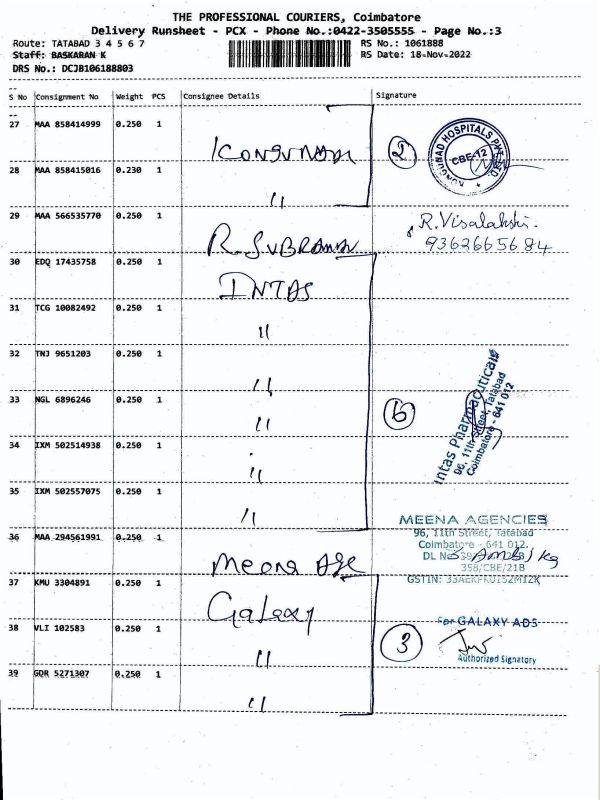 THE PROFESSIONAL COURIERS, Coimbatore
Delivery Runsheet - PCX - Phone No.:0422-3505555 - Page No.:3
Route: TATABAD 3 4 5 6 7
RS No.: 1061888
Staff: BASKARAN K
RS Date: 18-Nov-2022
DRS No.: DCJB106188803
S No Consignment No Weight PCS Consignee Details Signature
27 MAA 858414999 0.250 1
KONGUNAD
2
KONGUNAD HOSPITALS PVT. LTD.
CBE-12
28 MAA 858415016 0.230 1
"
29 MAA 566535770 0.250 1
R. SUBRAMANI
R. Visalakshi.
9362665684
30 EDQ 17435758 0.250 1
INTAS
31 TCG 10082492 0.250 1
"
32 TNJ 9651203 0.250 1
"
33 NGL 6896246 0.250 1
"
6
Intas Pharmaceuticals
96, 11th Street, Tatabad
Coimbatore - 641 012
34 IXM 502514938 0.250 1
"
35 IXM 502557075 0.250 1
"
36 MAA 294561991 0.250 1
Meena Age
MEENA AGENCIES
96, 11th Street, Tatabad
Coimbatore - 641 012.
DL No
35B/CBE/21B
GSTIN:
37 KMU 3304891 0.250 1
Galaxy
38 VLI 102583 0.250 1
"
3
For GALAXY ADS
Authorized Signatory
39 GDR 5271307 0.250 1
"